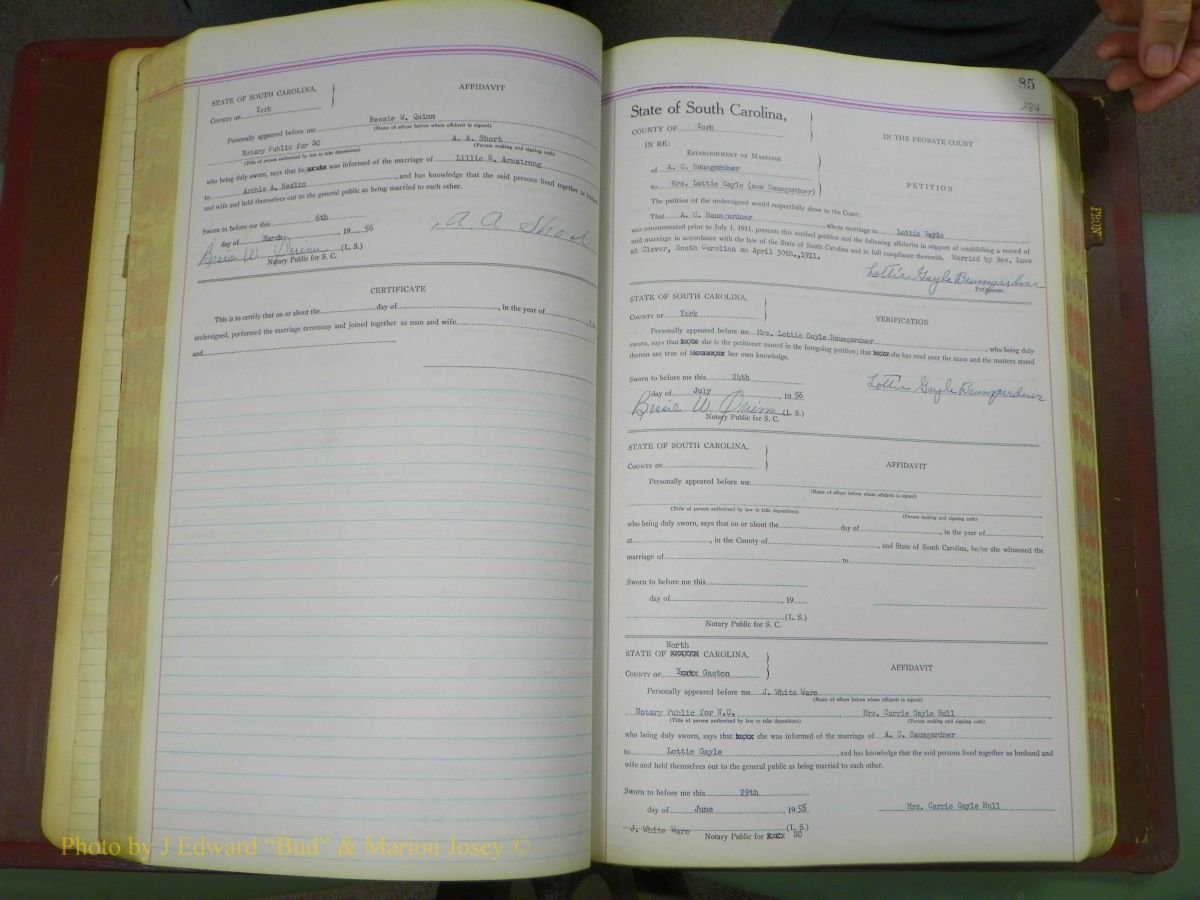 STATE OF SOUTH CAROLINA,
COUNTY OF York
AFFIDAVIT
Personally appeared before me Bessie W. Quinn
(Name of officer before whom affidavit is signed)
Notary Public for SC A. A. Short
(Title of person authorized by law to take depositions) (Person making and signing oath)
who being duly sworn, says that he was informed of the marriage of Lillie E. Armstrong
to Archie A. Medlin, and has knowledge that the said persons lived together as husband
and wife and held themselves out to the general public as being married to each other.
Sworn to before me this 6th
day of March, 1956
A A Short
Bessie W. Quinn (L. S.)
Notary Public for S. C.
CERTIFICATE
This is to certify that on or about the day of, in the year of, I,
undersigned, performed the marriage ceremony and joined together as man and wife
and
85
484
State of South Carolina,
COUNTY OF York
IN THE PROBATE COURT
IN RE:
ESTABLISHMENT OF MARRIAGE
of A. C. Baumgardner
to Mrs. Lottie Gayle (now Baumgardner)
PETITION
The petition of the undersigned would respectfully show to the Court:
That A. C. Baumgardner, whose marriage to Lottie Gayle
was consummated prior to July 1, 1911, presents this verified petition and the following affidavits in support of establishing a record of
said marriage in accordance with the law of the State of South Carolina and in full compliance therewith. Married by Rev. Lowe
at Clover, South Carolina on April 30th.,1911.
Lottie Gayle Baumgardner
Petitioner.
STATE OF SOUTH CAROLINA,
COUNTY OF York
VERIFICATION
Personally appeared before me Mrs. Lottie Gayle Baumgardner, who being duly
sworn, says that she is the petitioner named in the foregoing petition; that she has read over the same and the matters stated
therein are true of her own knowledge.
Sworn to before me this 24th
day of July, 1956
Lottie Gayle Baumgardner
Bessie W. Quinn (L. S.)
Notary Public for S. C.
STATE OF SOUTH CAROLINA,
COUNTY OF
AFFIDAVIT
Personally appeared before me
(Name of officer before whom affidavit is signed)
(Title of person authorized by law to take depositions) (Person making and signing oath)
who being duly sworn, says that on or about the day of, in the year of
at, in the County of, and State of South Carolina, he/or she witnessed the
marriage of to
Sworn to before me this
day of, 19
(L. S.)
Notary Public for S. C.
North
STATE OF CAROLINA,
COUNTY OF Gaston
AFFIDAVIT
Personally appeared before me J. White Ware
(Name of officer before whom affidavit is signed)
Notary Public for N.C. Mrs. Carrie Gayle Hull
(Title of person authorized by law to take depositions) (Person making and signing oath)
who being duly sworn, says that she was informed of the marriage of A. C. Baumgardner
to Lottie Gayle, and has knowledge that the said persons lived together as husband and
wife and held themselves out to the general public as being married to each other.
Sworn to before me this 29th
day of June, 1955
Mrs. Carrie Gayle Hull
J. White Ware (L. S.)
Notary Public for NC
Photo by J Edward "Bud" & Marion Josey ©